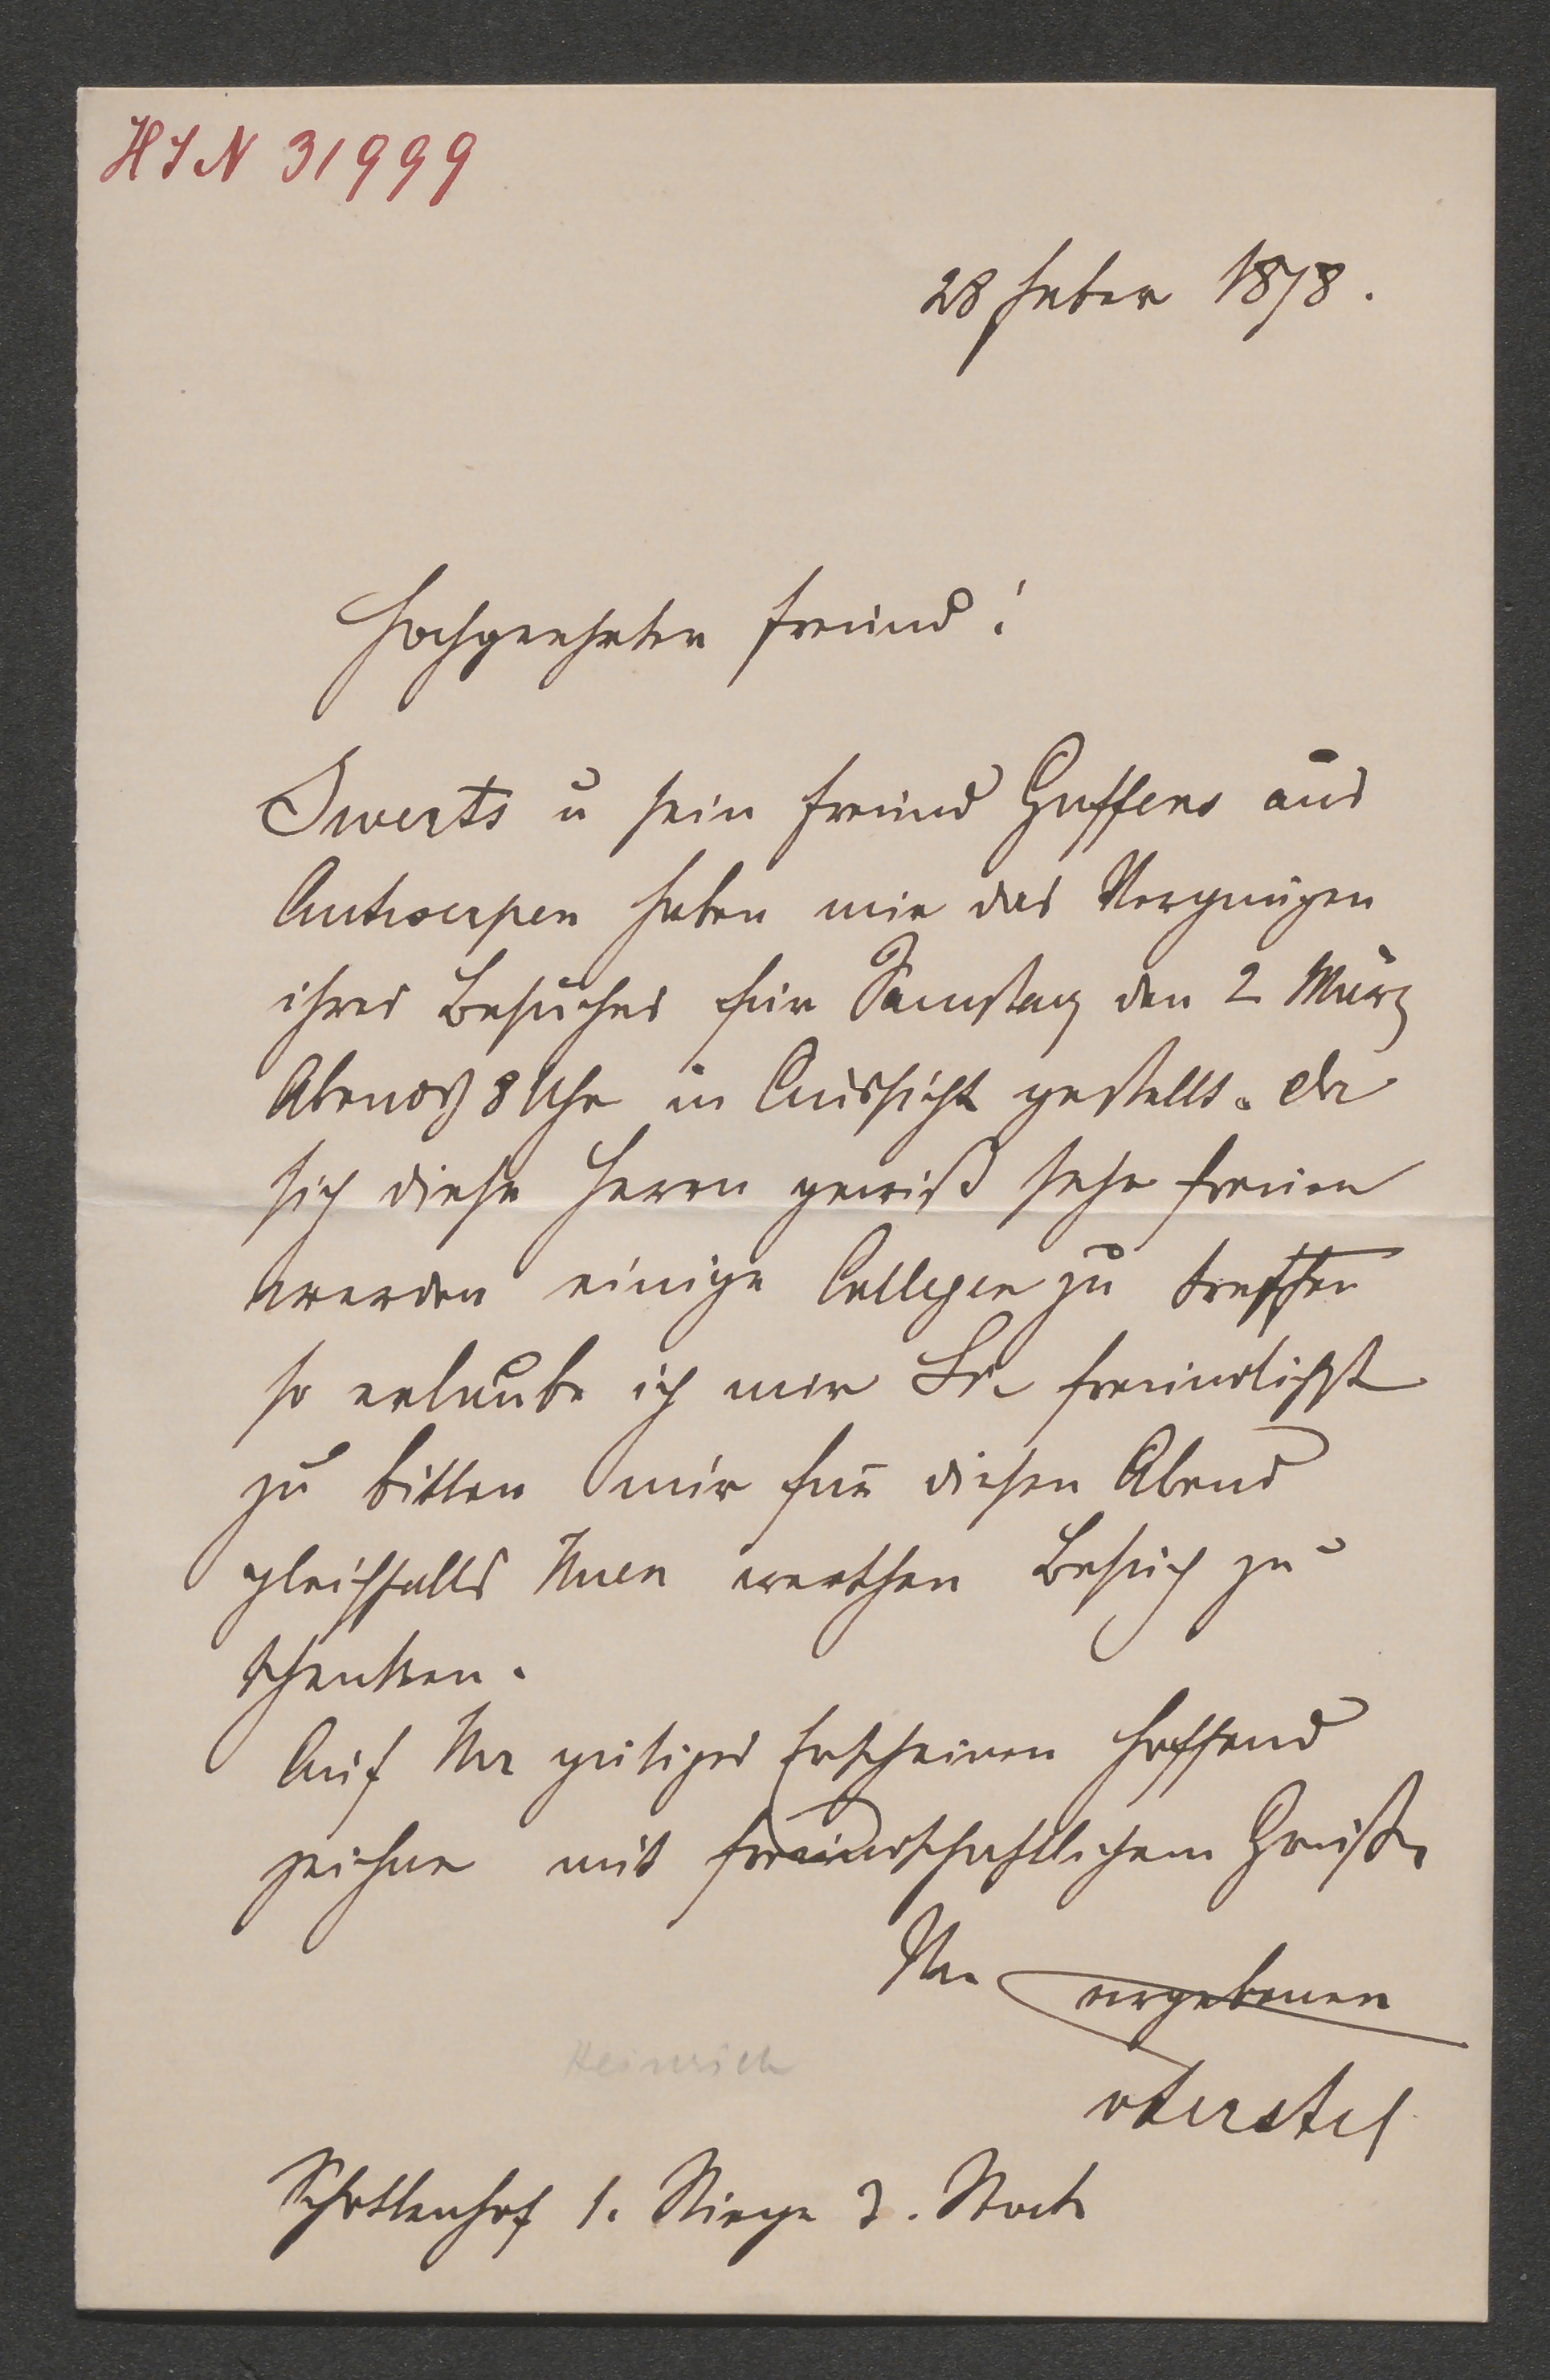 HIN 31999
28 Feber 1878.
Hochgeehrter Freund!
Swerts u sein Freund Guffens aus
Antwerpen haben mir das Vergnügen
ihres Besuches für Samstag den 2 März
Abends 8 Uhr in Aussicht gestellt. Da
sich diese Herrn gewiß sehr freuen
werden einige Collegen zu treffen
so erlaube ich mir Sie freundlichst
zu bitten mir für diesen Abend
gleichfalls Ihren werthen Besuch zu
schenken.
Auf Ihr gütiges Erscheinen hoffend
zeichne mit freundschaftlichem Gruße
Ihr ergebener
Heinrich
vFerstel
Schottenhof 1. Stiege 3. Stock